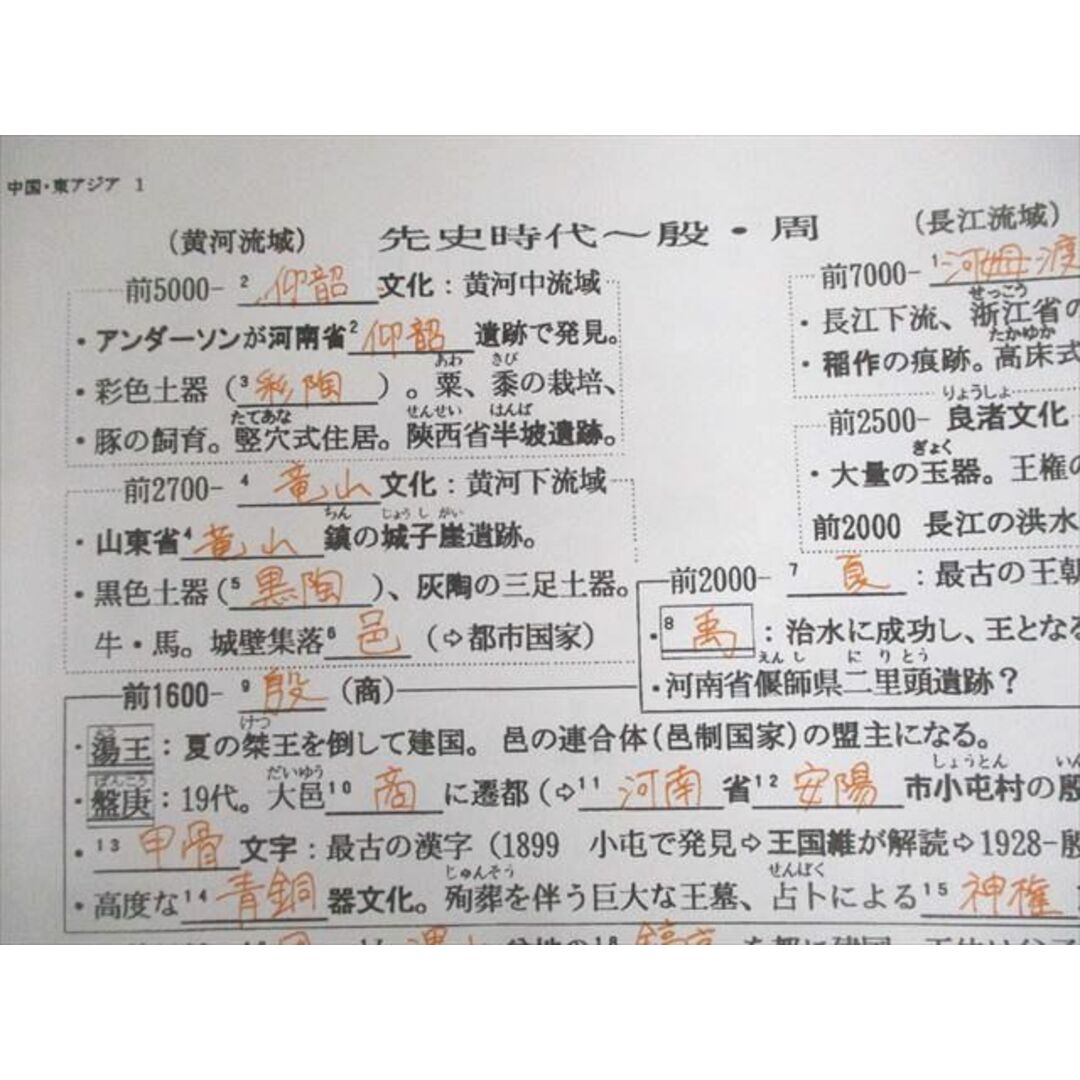 中国・東アジア 1
先史時代～殷・周
（黄河流域）
前5000- 2 仰韶 文化：黄河中流域
・アンダーソンが河南省2 仰韶 遺跡で発見。
・彩色土器（3 彩陶 ）。粟、黍の栽培、
あわ きび
・豚の飼育。竪穴式住居。陝西省半坡遺跡。
たてあな せんせい はんぱ
前2700- 4 竜山 文化：黄河下流域
・山東省4 竜山 鎮の城子崖遺跡。
ちん じょうしがい
・黒色土器（5 黒陶 ）、灰陶の三足土器。
牛・馬。城壁集落6 邑 （⇨都市国家）
（長江流域）
前7000- 1 河姆渡
・長江下流、浙江省の
せっこう
・稲作の痕跡。高床式
たかゆか
前2500- 良渚文化
りょうしょ
・大量の玉器。王権の
ぎょく
前2000 長江の洪水
前2000- 7 夏 ：最古の王朝
・8 禹 ：治水に成功し、王となる
・河南省偃師県二里頭遺跡？
えんし にりとう
前1600- 9 殷 （商）
・湯王：夏の桀王を倒して建国。邑の連合体（邑制国家）の盟主になる。
けつ
・盤庚：19代。大邑10 商 に遷都（⇨11 河南 省12 安陽 市小屯村の殷
ばんこう だいゆう しょうとん いん
・13 甲骨 文字：最古の漢字（1899 小屯で発見⇨王国維が解読⇨1928-殷
・高度な14 青銅 器文化。殉葬を伴う巨大な王墓、占卜による15 神権
じゅんそう せんぼく